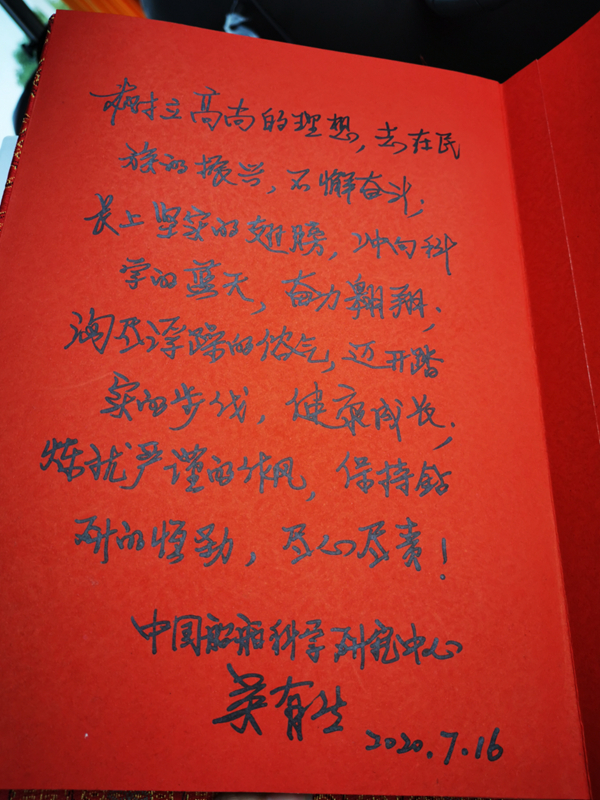 树立高尚的理想，去在民
族的振兴，不懈奋斗；
长上坚实的翅膀，冲向科
学的蓝天，奋力翱翔；
淘尽浮躁的俗气，迈开踏
实的步伐，健康成长；
炼就严谨的作风，保持钻
研的恒勤，尽心尽责！
中国船舶科学研究中心
吴有生
2020.7.16